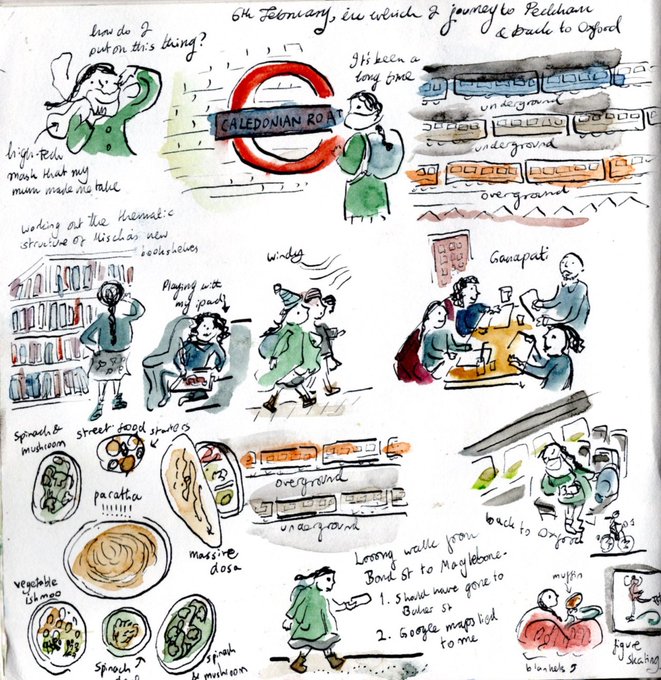 6th February, in which I journey to Peckham
& back to Oxford
how do I
put on this thing?
high-tech
mask that my
mum made me take
CALEDONIAN ROA
It's been a
long time
underground
underground
overground
working out the thematic
structure of Mischa's new
bookshelves
Playing with
my ipad
windy
Ganapati
spinach &
mushroom
street food starters
paratha
!!!!!!!
massive
dosa
vegetable
ishmoo
spinach
spinach
& mushroom
overground
underground
back to Oxford
Looong walk from
Bond St to Maylebone-
1. Should have gone to
Baker St
2. Google maps lied
to me
muffin
blankets
figure
skating